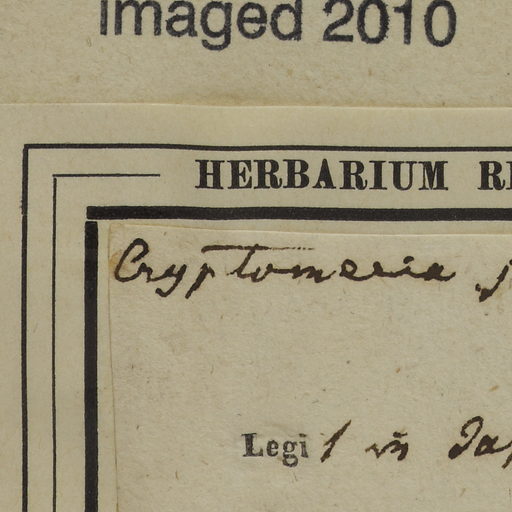 Imaged 2010
HERBARIUM
Cryptomeria j
Legit in Jap